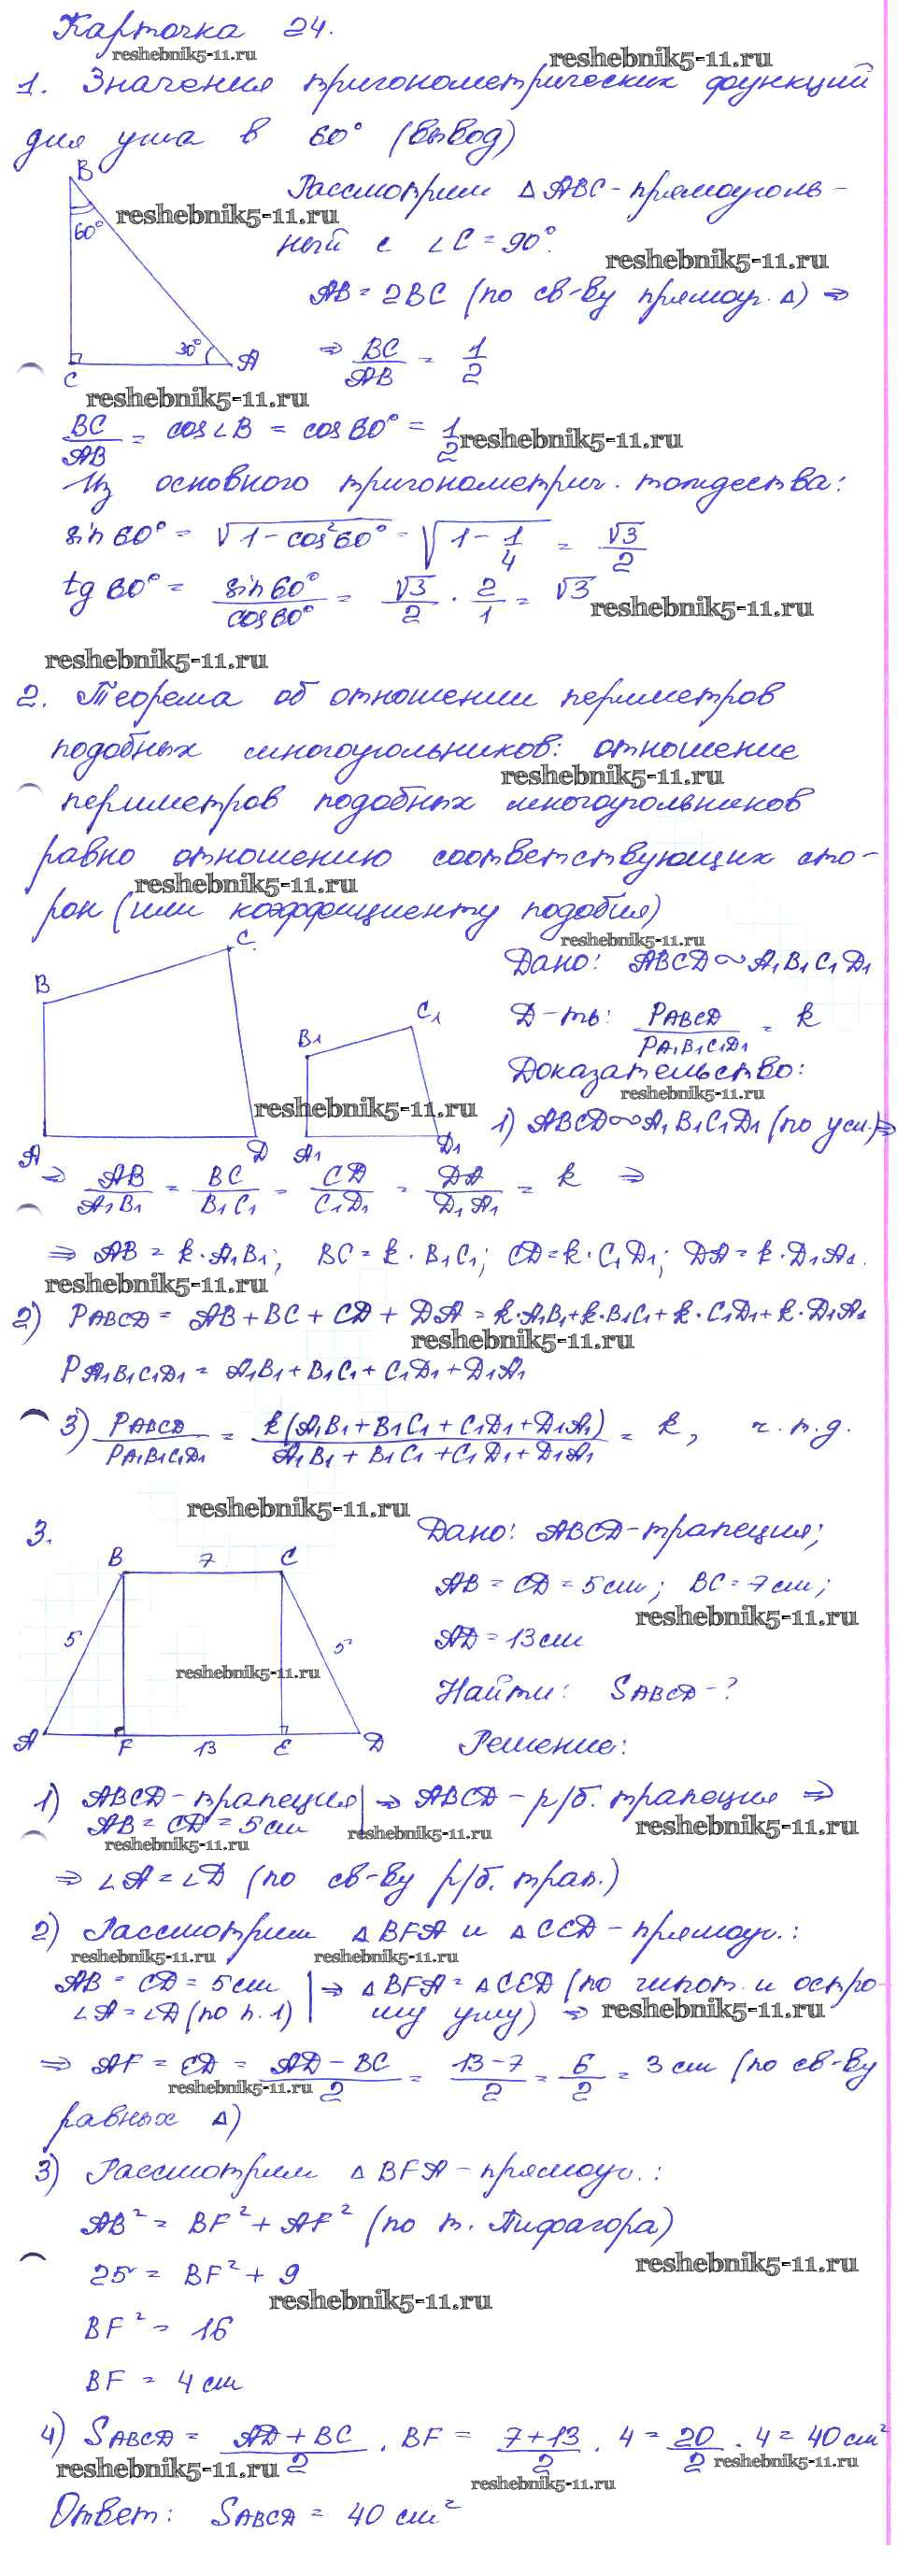 Карточка 24.
reshebnik5-11.ru
reshebnik5-11.ru
1. Значения тригонометрических функций
для угла в 60° (вывод)
B
60°
30°
C
A
reshebnik5-11.ru
Рассмотрим △ABC - прямоуголь-
ный с ∠C = 90°.
reshebnik5-11.ru
AB = 2BC (по св-ву прямоуг. △) ⇒
⇒ BC/AB = 1/2
reshebnik5-11.ru
BC/AB = cos∠B = cos 60° = 1/2
reshebnik5-11.ru
Из основного тригонометрич. тождества:
sin 60° = √(1 - cos²60°) = √(1 - 1/4) = √3/2
tg 60° = sin 60°/cos 60° = √3/2 · 2/1 = √3
reshebnik5-11.ru
reshebnik5-11.ru
2. Теорема об отношении периметров
подобных многоугольников: отношение
reshebnik5-11.ru
периметров подобных многоугольников
равно отношению соответствующих сто-
reshebnik5-11.ru
рон (или коэффициенту подобия)
reshebnik5-11.ru
B
C
A
D
B₁
C₁
A₁
D₁
reshebnik5-11.ru
Дано: ABCD ~ A₁B₁C₁D₁
Д-ть: PABCD/PA₁B₁C₁D₁ = k
Доказательство:
reshebnik5-11.ru
1) ABCD ~ A₁B₁C₁D₁ (по усл.) ⇒
⇒ AB/A₁B₁ = BC/B₁C₁ = CD/C₁D₁ = DA/D₁A₁ = k ⇒
⇒ AB = k·A₁B₁; BC = k·B₁C₁; CD = k·C₁D₁; DA = k·D₁A₁.
reshebnik5-11.ru
2) PABCD = AB + BC + CD + DA = k·A₁B₁ + k·B₁C₁ + k·C₁D₁ + k·D₁A₁
reshebnik5-11.ru
PA₁B₁C₁D₁ = A₁B₁ + B₁C₁ + C₁D₁ + D₁A₁
3) PABCD/PA₁B₁C₁D₁ = k(A₁B₁ + B₁C₁ + C₁D₁ + D₁A₁)/A₁B₁ + B₁C₁ + C₁D₁ + D₁A₁ = k, ч.т.д.
reshebnik5-11.ru
3.
B
7
C
5
5
A
F
13
E
D
reshebnik5-11.ru
Дано: ABCD - трапеция;
AB = CD = 5см; BC = 7см;
reshebnik5-11.ru
AD = 13см
Найти: SABCD - ?
Решение:
1) ABCD - трапеция | ⇒ ABCD - р/б. трапеция ⇒
AB = CD = 5см
reshebnik5-11.ru
reshebnik5-11.ru
reshebnik5-11.ru
⇒ ∠A = ∠D (по св-ву р/б. трап.)
2) Рассмотрим △BFA и △CED - прямоуг.:
reshebnik5-11.ru
reshebnik5-11.ru
AB = CD = 5см | ⇒ △BFA = △CED (по гипот. и остро-
∠A = ∠D (по п. 1) | му углу) ⇒
reshebnik5-11.ru
⇒ AF = ED = AD - BC/2 = 13-7/2 = 6/2 = 3см (по св-ву
reshebnik5-11.ru
равных △)
3) Рассмотрим △BFA - прямоуг.:
AB² = BF² + AF² (по т. Пифагора)
reshebnik5-11.ru
25 = BF² + 9
reshebnik5-11.ru
BF² = 16
BF = 4см
4) SABCD = AD + BC/2 · BF = 7+13/2 · 4 = 20/2 · 4 = 40см²
reshebnik5-11.ru
reshebnik5-11.ru
reshebnik5-11.ru
Ответ: SABCD = 40см²